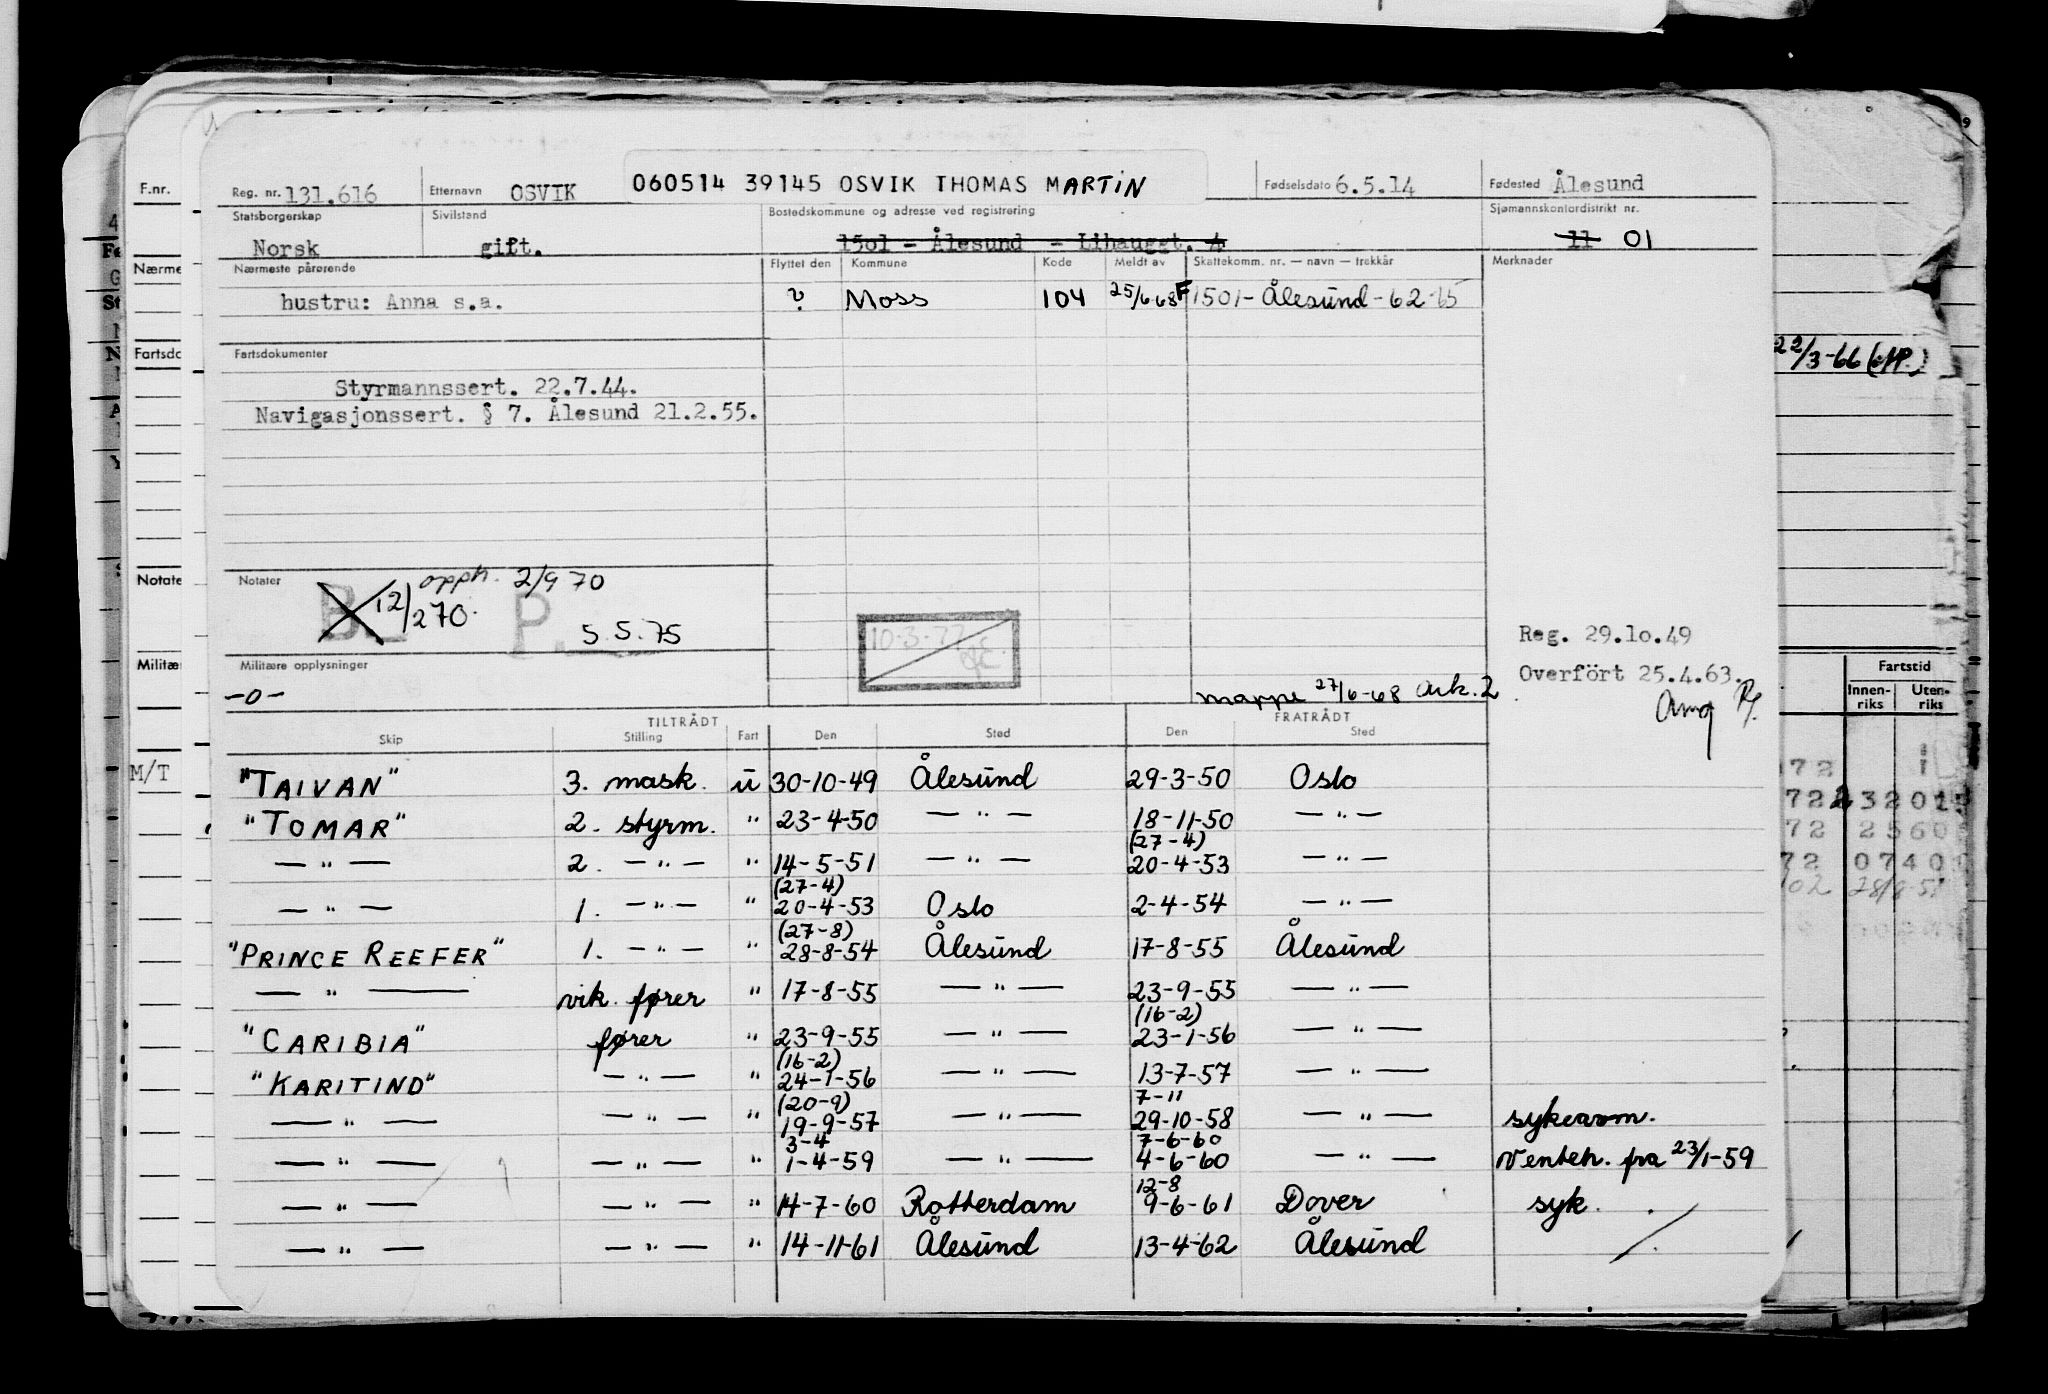 F.nr.
Reg. nr. 131.616 Etternavn OSVIK 060514 39145 OSVIK THOMAS MARTIN Fødselsdato 6.5.14 Fødested Ålesund
Statsborgerskap Sivilstand Bostedskommune og adresse ved registrering Sjømannskontordistrikt nr.
Norsk gift. 1501 - Ålesund - Lihauggt. 4 11 01
Nærme
Nærmeste pårørende Flyttet den Kommune Kode Meldt av Skattekomm. nr. — navn — trekkår Merknader
hustru: Anna s.a. ? Moss 104 25/6-68 F 1501 - Ålesund - 62-65
Fartsdo
Fartsdokumenter
22/3-66
Styrmannssert. 22.7.44.
Navigasjonssert. § 7. Ålesund 21.2.55.
Notate
Notater
B 12/270. 2/9 70
P. 5.5.75
10-3-77
Reg. 29.10.49
Militæ
Militære opplysninger
Overfört 25.4.63.
-0-
mappe 27/6-68 Ark. 2
Fartstid
Innen-riks Uten-riks
TILTRÅDT FRATRÅDT
Skip Stilling Fart Den Sted Den Sted
M/T
"TAIVAN" 3. mask. u 30-10-49 Ålesund 29-3-50 Oslo
"TOMAR" 2. styrm. " 23-4-50 — " — 18-11-50 — " —
(27-4)
— " — 2. — " — " 14-5-51 — " — 20-4-53 — " —
(27-4)
— " — 1. — " — " 20-4-53 Oslo 2-4-54 — " —
(27-8)
"PRINCE REEFER" 1. — " — " 28-8-54 Ålesund 17-8-55 Ålesund
— " — vik. fører " 17-8-55 — " — 23-9-55 — " —
(16-2)
"CARIBIA" fører " 23-9-55 — " — 23-1-56 — " —
(16-2)
"KARITIND" — " — " 24-1-56 — " — 13-7-57 — " —
(20-9) 7-11
— " — — " — " 19-9-57 — " — 29-10-58 — " — sykeavm.
3-4 7-6-60
— " — — " — " 1-4-59 — " — 4-6-60 — " — Venteh. fra 23/1-59
12-8
— " — — " — " 14-7-60 Rotterdam 9-6-61 Dover syk.
— " — — " — " 14-11-61 Ålesund 13-4-62 Ålesund